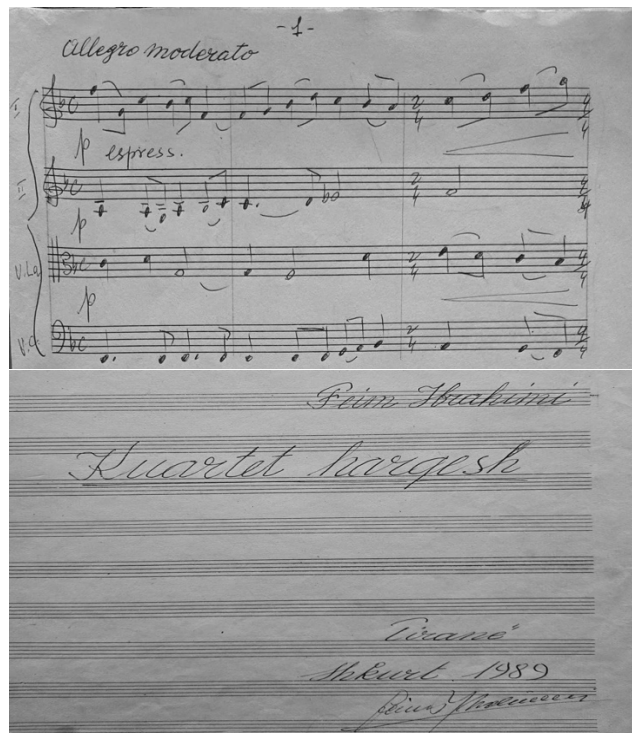 -1-
Allegro moderato
I
p espress.
II
p
V.La
p
V.C.
Feim Ibrahimi
Kuartet hargesh
Tiranë
Shkurt 1989
Feim Ibrahimi